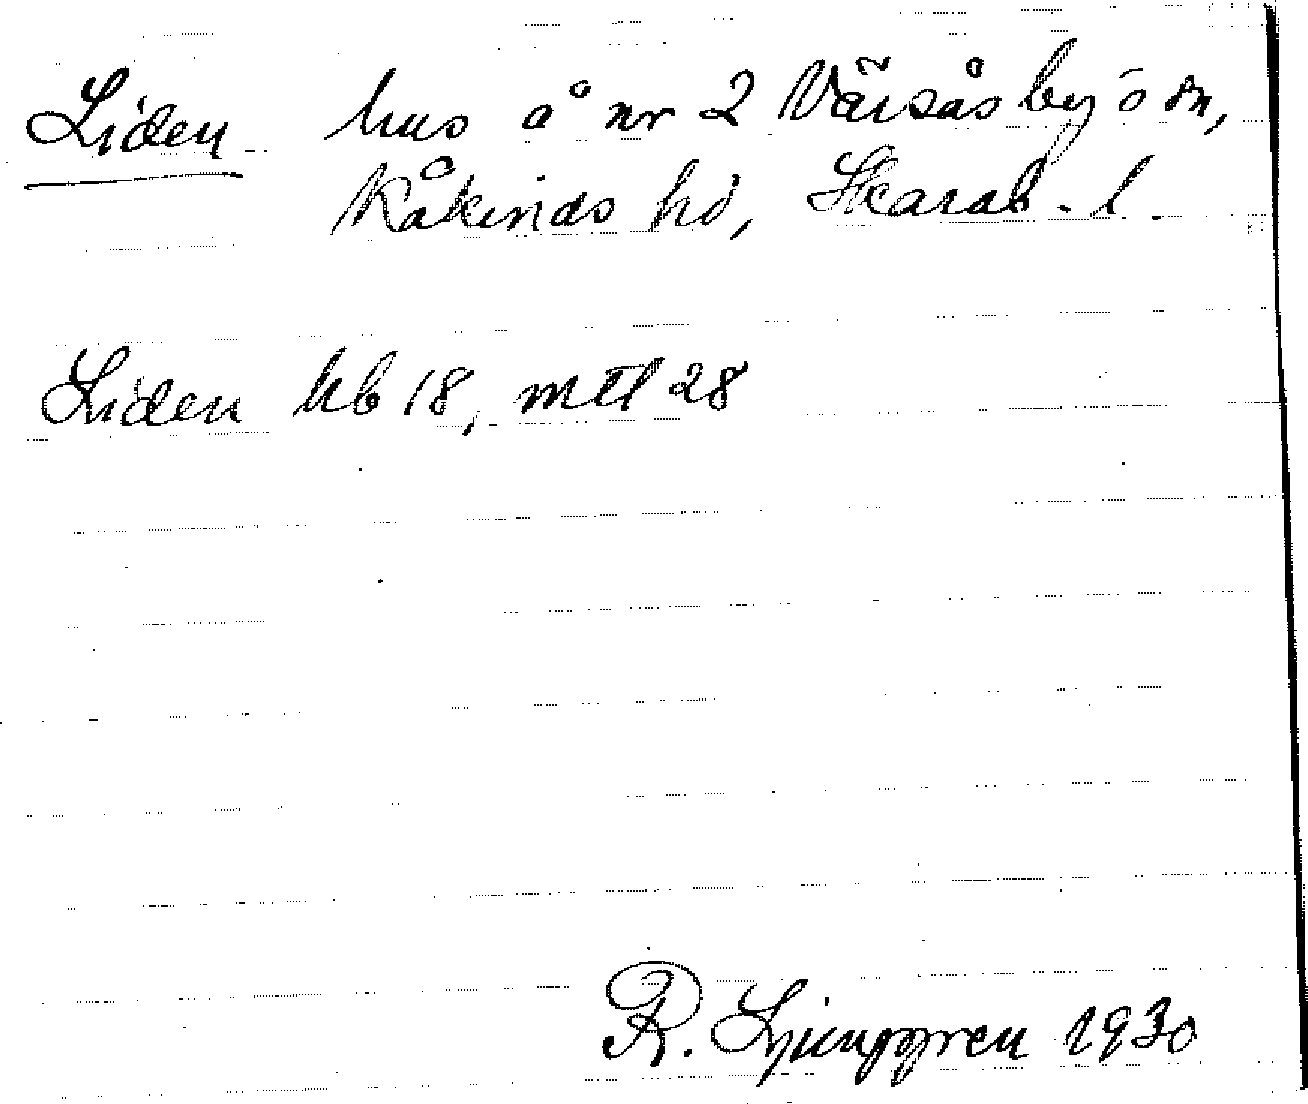 Liden hus å nr 2 Värsås by o sn,
Kåkinds hd, Skarab. l.
Liden kb 18, mtl 28
R. Ljunggren 1930